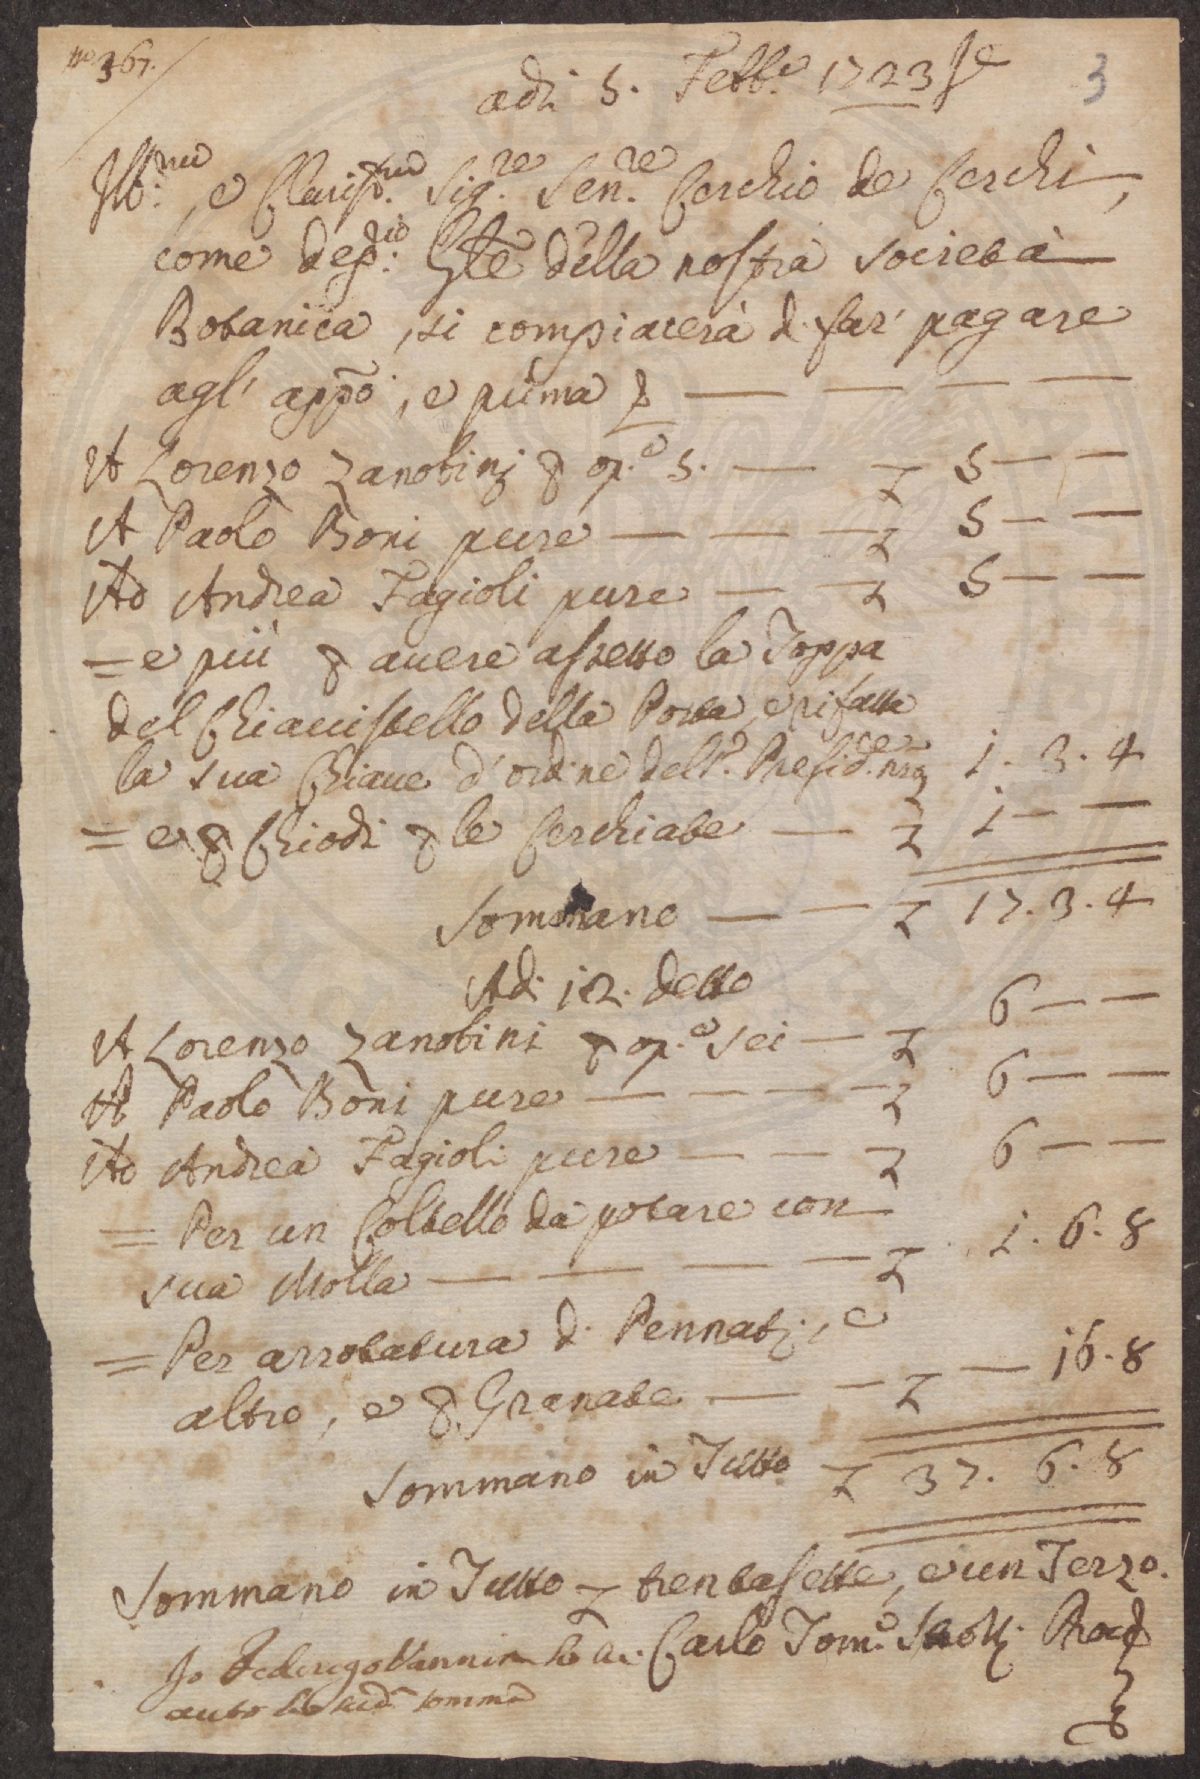 n.º 367.
3
adì 5. Febb.º 1723
Ill.mo, e Clariss.mo Sig.re Sen.re Cerchio de Cerchi,
come dep.rio G̃le della nostra Società
Botanica, si compiacerà di far' pagare
agl' appõi, e prima
A Lorenzo Zanobini p op.e 5. — £ 5 — —
A Paolo Boni pure — — — £ 5 — —
Ad Andrea Fagioli pure — — £ 5 — —
= e più p avere assetto la Toppa
del Chiavistello della Porta, e rifatta
la sua Chiave d'ordine dell' Presid.te nro 1. 3. 4
= e p Chiodi p le Cerchiate — £ 1 — —
Sommano — — £ 17. 3. 4
Adi 12. detto
A Lorenzo Zanobini p op.e sei — £ 6 — —
A Paolo Boni pure — — — — £ 6 — —
Ad Andrea Fagioli pure — — £ 6 — —
= Per un Coltello da potare con
sua Molla — — — — £ 1. 6. 8
= Per arrotatura di Pennati, e
altro, e p Granate — — £ — 16. 8
Sommano in Tutto £ 37. 6. 8
Sommano in Tutto £ trentasette, e un Terzo.
Carlo Tom.º
Io Federigo Vannini ho
auto la sud.a somma